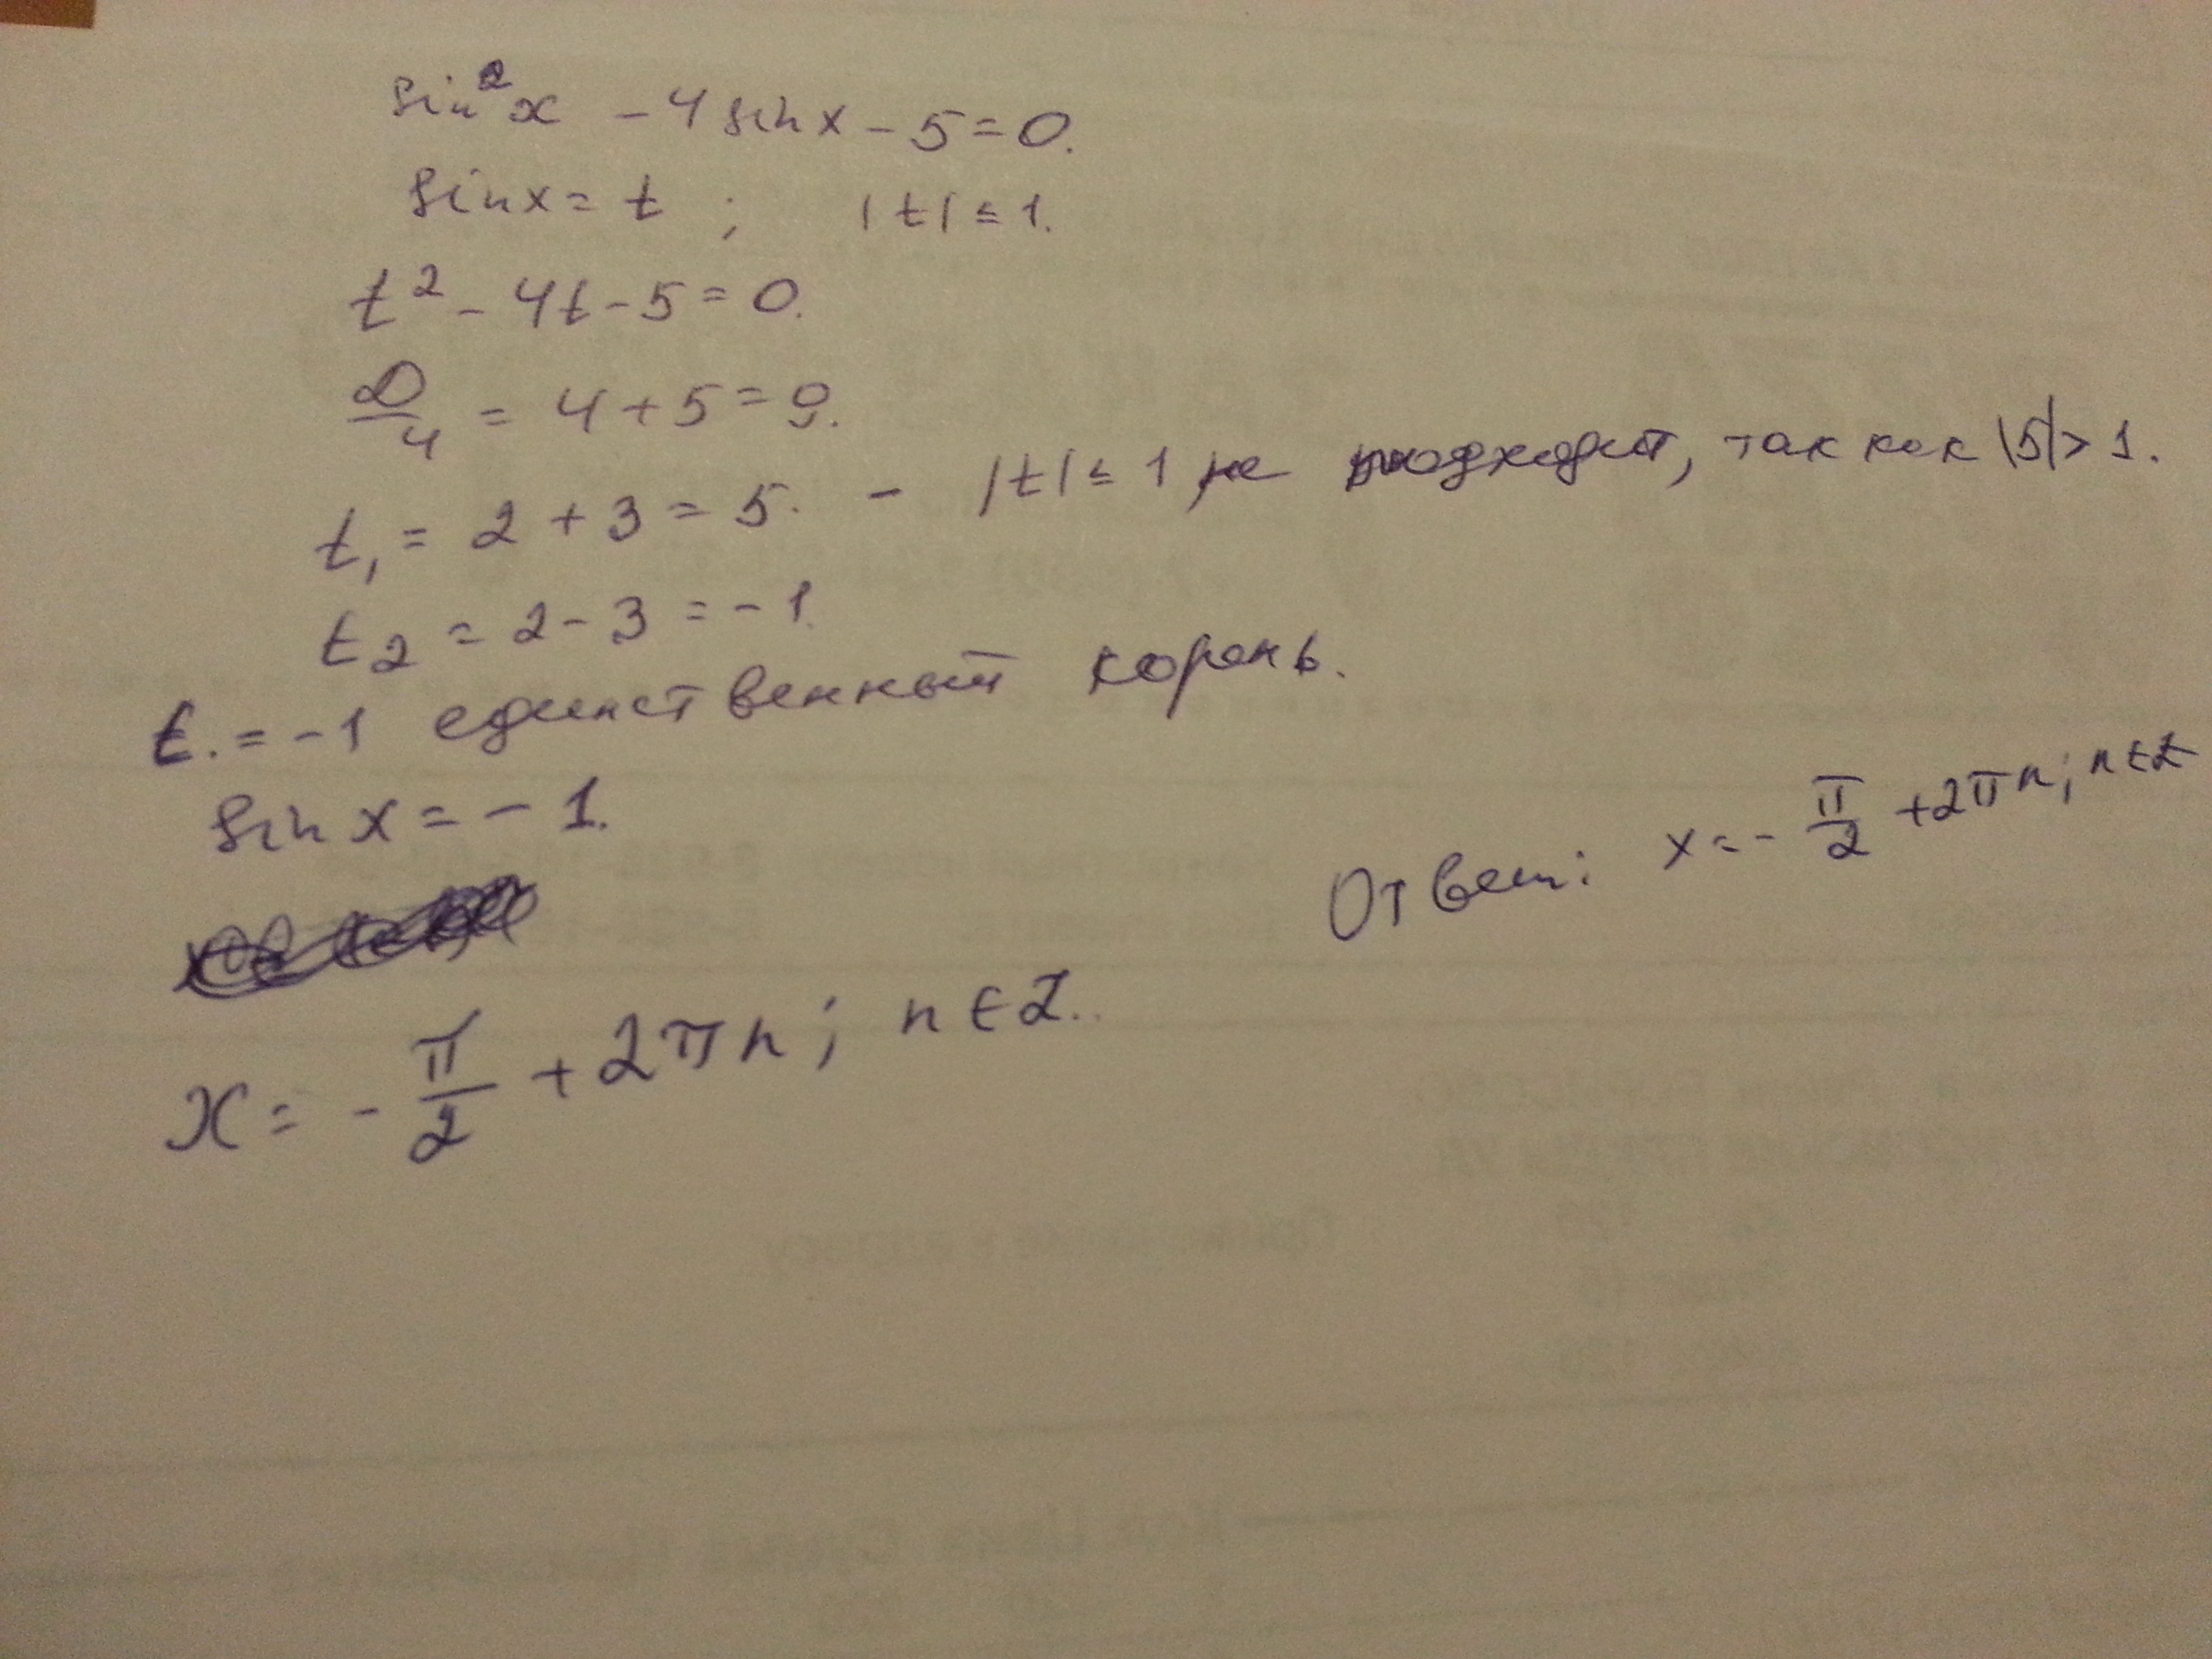 sin²x - 4 sin x - 5 = 0.
sin x = t ; |t| ≤ 1.
t² - 4t - 5 = 0.
D/4 = 4 + 5 = 9.
t₁ = 2 + 3 = 5. - |t| ≤ 1 не подходит, так как |5| > 1.
t₂ = 2 - 3 = -1.
t. = -1 единственный корень.
sin x = -1.
x = - π/2 + 2πn; n ∈ Z.
Ответ: x = - π/2 + 2πn; n ∈ Z